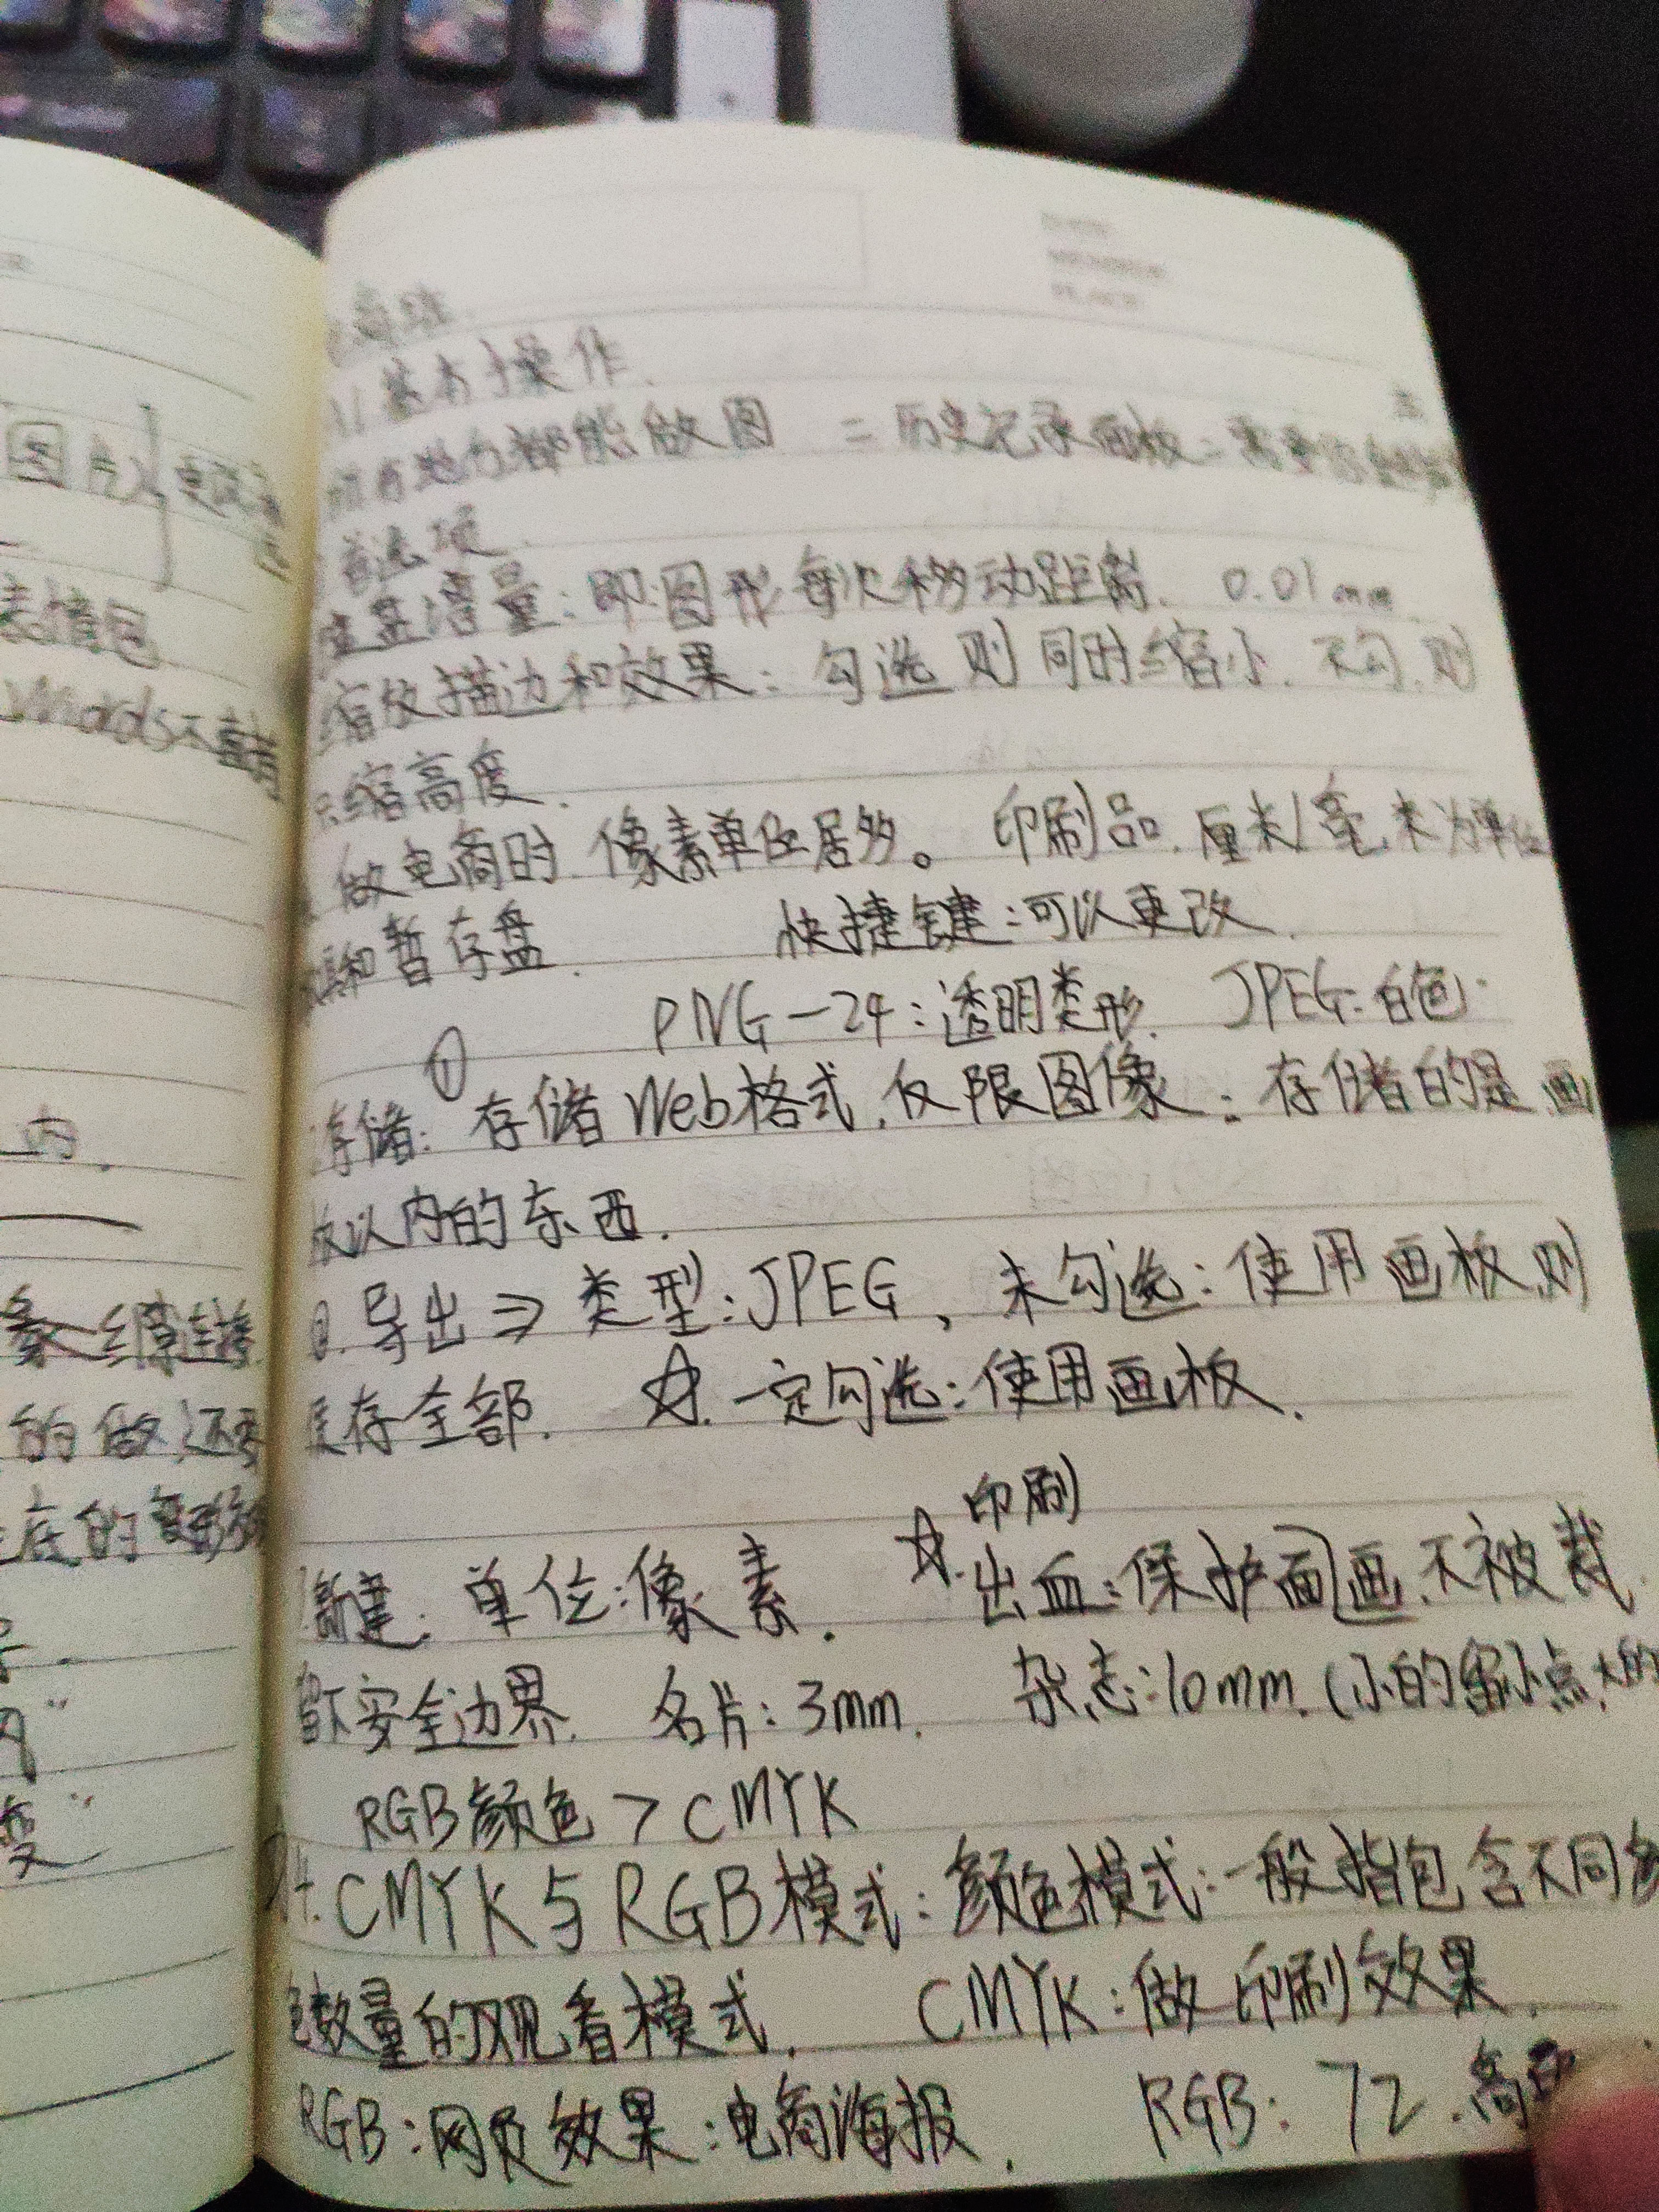 图片
表情包
Words不
内.
的做,还
在的
变"
基本操作.
都能做图 二历史记录面板二需要
首选项.
键盘增量:即图形每次移动距离. 0.01mm
缩放描边和效果:勾选则同时缩小.不勾.则
只缩高度.
做电商时.像素单位居多。 印刷品.厘米/毫米为单位
和暂存盘. 快捷键:可以更改.
PNG-24:透明类形. JPEG:白色.
①
存储:存储Web格式.仅限图像:存储的是画
板以内的东西.
②.导出⇒类型:JPEG,未勾选:使用画板则
保存全部. ☆.一定勾选:使用画板.
印刷
新建.单位:像素. ☆.出血:保护画面不被裁.
留下安全边界. 名片:3mm. 杂志:10mm.(小的留小点,大的
RGB颜色>CMYK
CMYK与RGB模式:颜色模式:一般指包含不同
色数量的观看模式. CMYK:做印刷效果.
RGB:网页效果:电商海报. RGB:72.